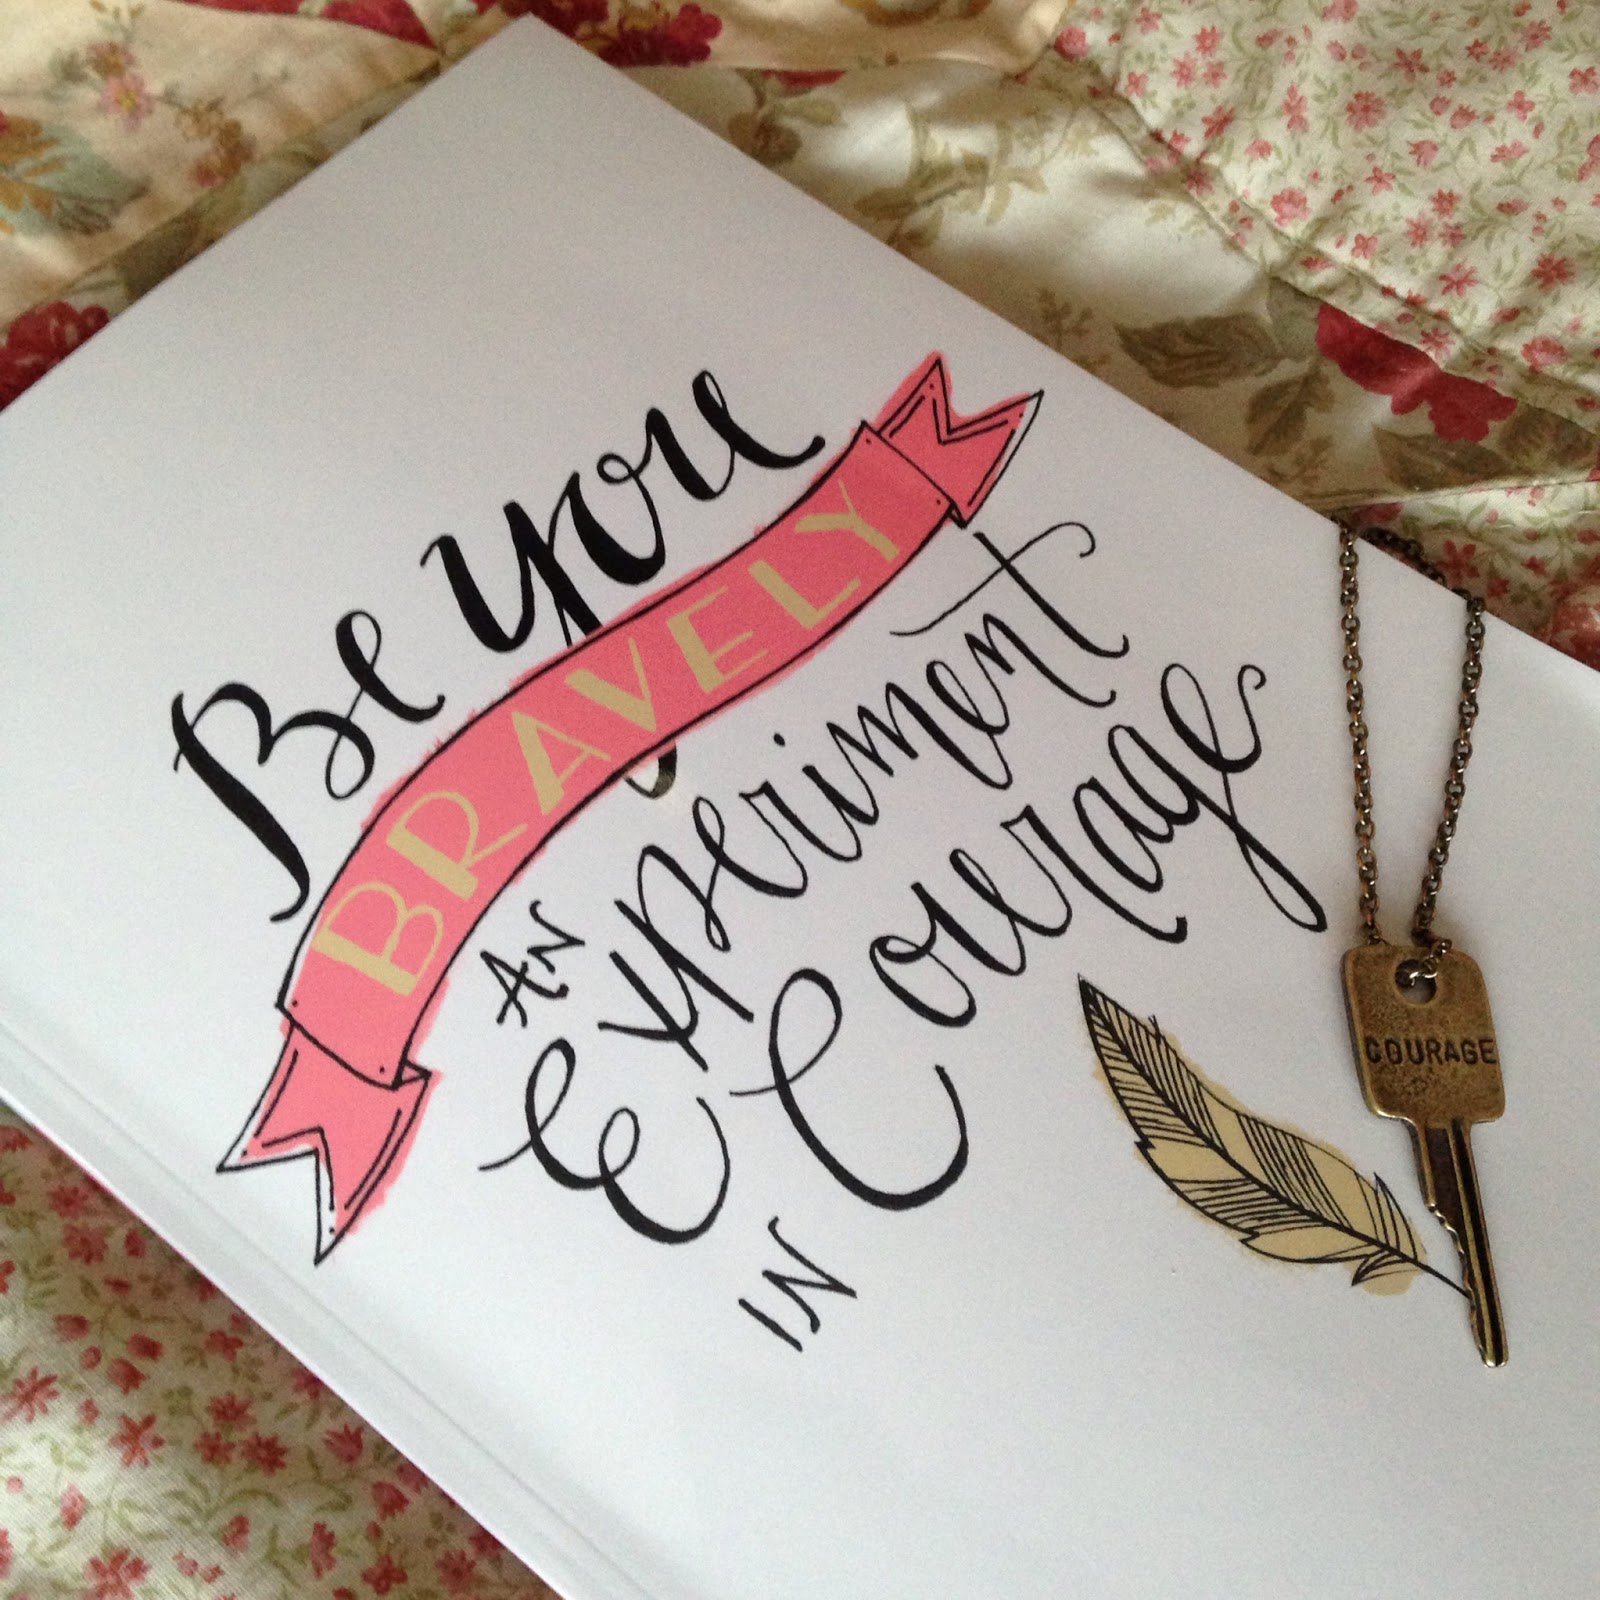 Be you
BRAVELY
AN
Experiment
IN
Courage
COURAGE